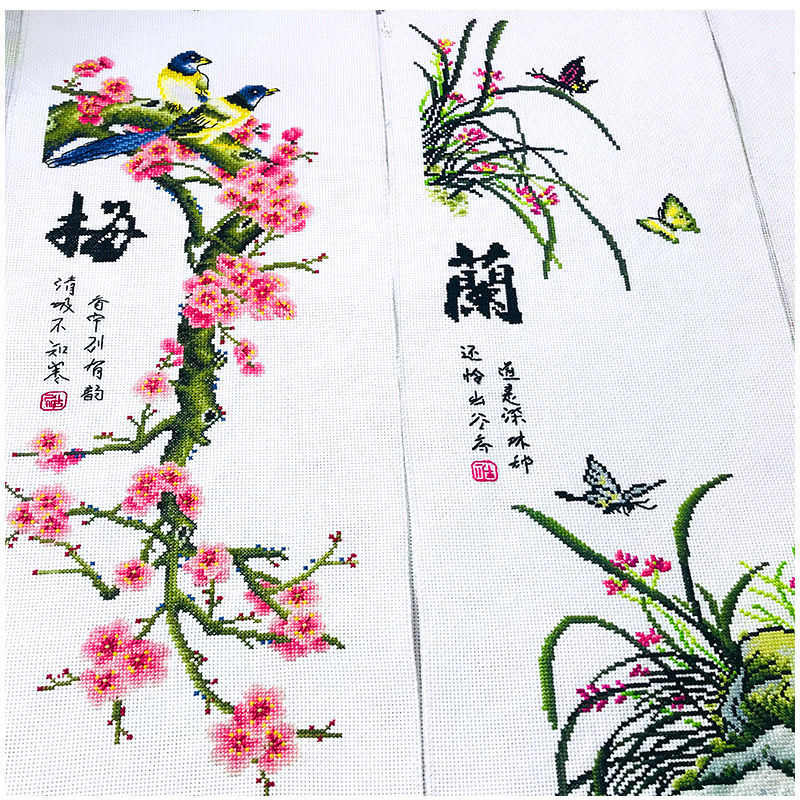 梅
香中别有韵
清极不知寒
蘭
道是深林种
还怜出谷香